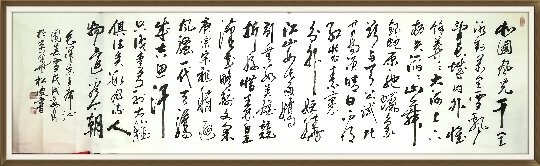 北國風光千里
冰封萬里雪飄
望長城内外惟
餘莽莽大河上下
頓失滔滔山舞
銀蛇原馳蠟象
欲與天公試比
高須晴日看
紅裝素裹
分外妖嬈
江山如此多嬌
引無數英雄競
折腰惜秦皇
漢武略輸文采
唐宗宋祖稍遜
風騷一代天驕
成吉思汗
只識彎弓射大雕
俱往矣數風流人
物還看今朝
毛澤東主席沁
園春雪
書